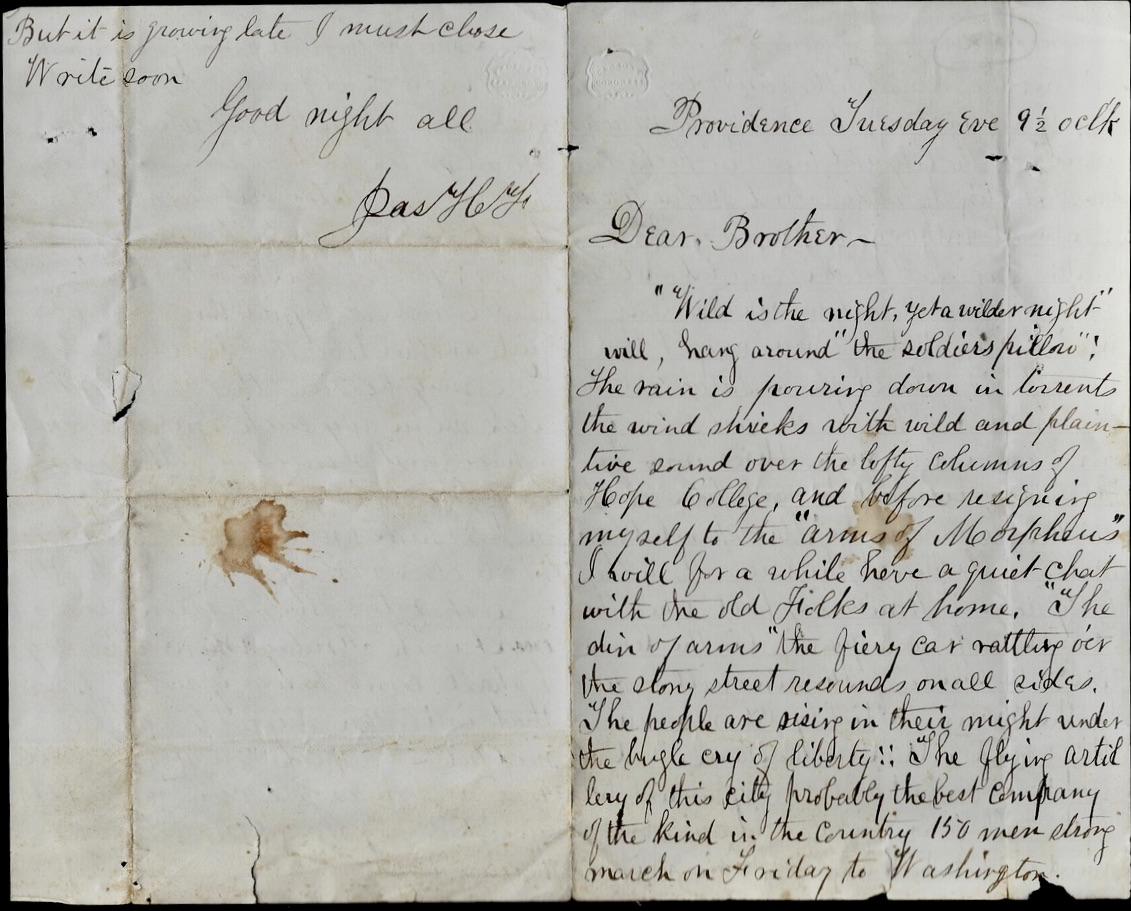 But it is growing late I must close
Write soon
Good night all
Jas H
Providence Tuesday Eve 9½ oclk
Dear Brother—
" "Wild is the night, yet a wilder night"
will, hang around" the soldiers pillow";
The rain is pouring down in torrents
the wind shrieks with wild and plain-
tive sound over the lofty columns of
Hope College, and before resigning
myself to the "arms of Morpheus"
I will for a while have a quiet chat
with the old Folks at home. "The
din of arms" the fiery car rattling oér
the stony street resounds on all sides.
The people are rising in their might under
the bugle cry of liberty!! The flying artil
lery of this city probably the best company
of the kind in the country 150 men strong
march on Friday to Washington.